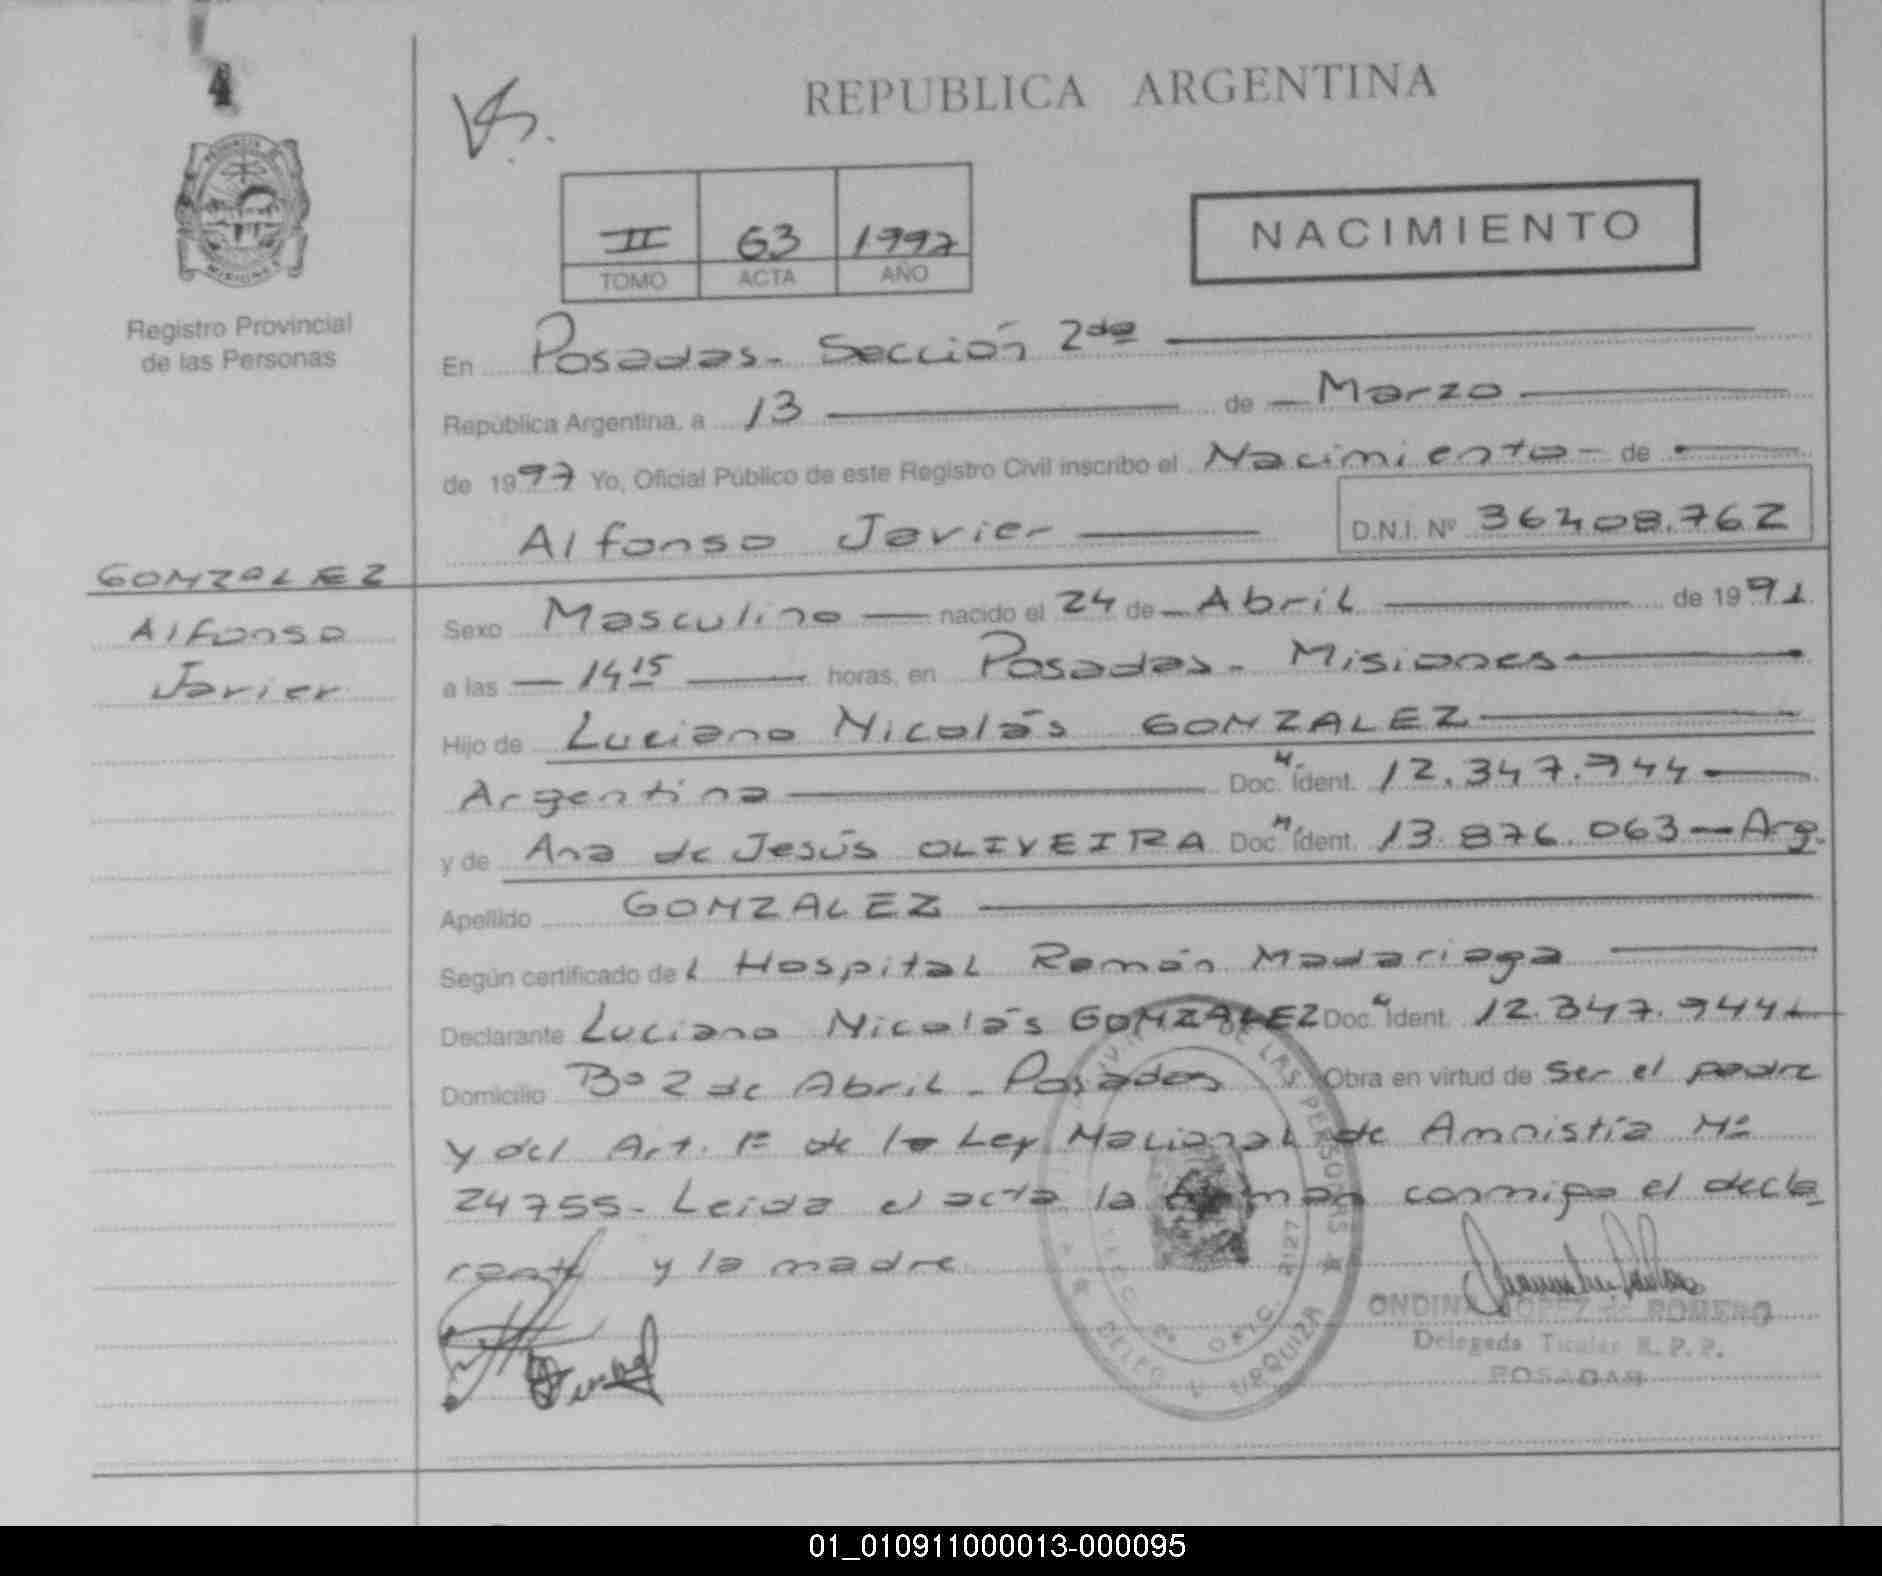 4
REPUBLICA ARGENTINA
II 63 1997
TOMO ACTA AÑO
NACIMIENTO
Registro Provincial
de las Personas
En Posadas - Sección 2da
República Argentina, a 13 de Marzo
de 1997 Yo, Oficial Público de este Registro Civil inscribo el Nacimiento - de
Alfonso Javier D.N.I. Nº 36408.762
GONZALEZ
Alfonso
Javier
Sexo Masculino nacido el 24 de Abril de 1991
a las 14 15 horas, en Posadas - Misiones
Hijo de Luciano Nicolás GONZALEZ
Argentina Doc. Ident. 12.347.944
y de Ana de Jesús OLIVEIRA Doc. Ident. 13.876.063 - Arg.
Apellido GONZALEZ
Según certificado del Hospital Ramón Madariaga
Declarante Luciano Nicolás GONZALEZ Doc. Ident. 12.347.944
Domicilio Bº 2 de Abril - Posadas Obra en virtud de ser el padre
y del Art. 1º de la Ley Nacional de Amnistía Nº
24755 - Leída el acta la firman conmigo el decla
rante y la madre
DE LAS PERSONAS
OFIC. 2127
DELEG URQUIZA
ONDINA LOPEZ de ROMERO
Delegada Titular R. P. P.
POSADAS
01_010911000013-000095